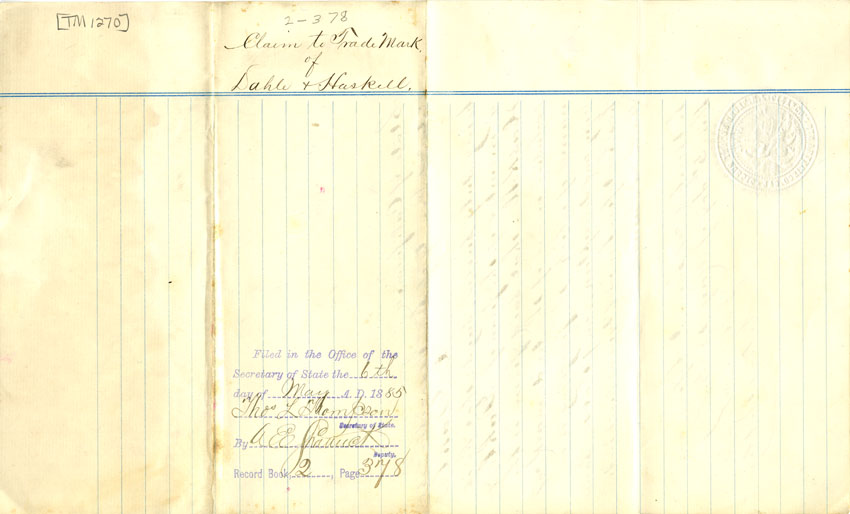 [TM 1270]
2-378
Claim to Trade Mark
of
Dahle & Haskell.
Filed in the Office of the
Secretary of State the 6th
day of May A. D. 1885
Thos L Thompson
Secretary of State.
By A E
Deputy.
Record Book, 2, Page 378